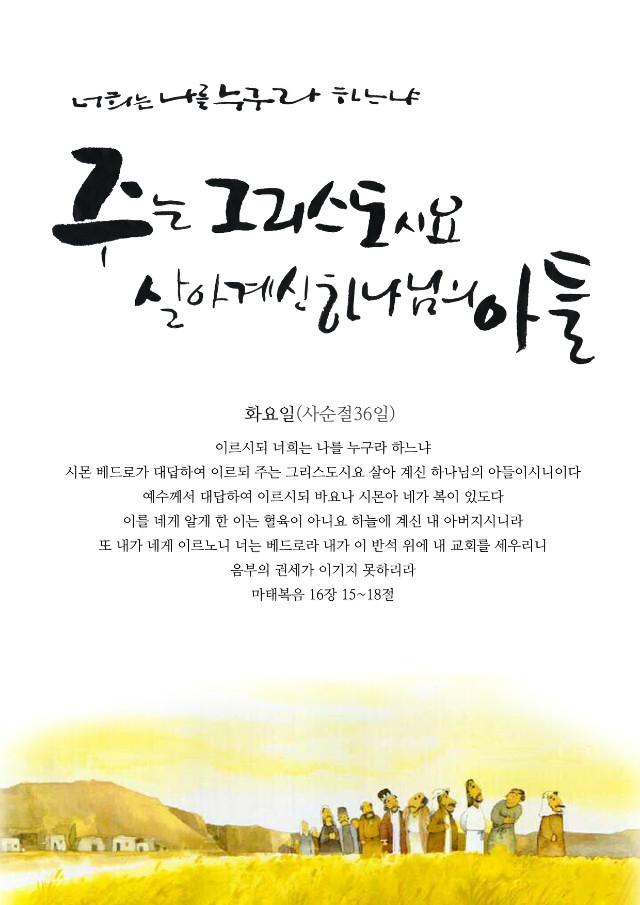 너희는 나를 누구라 하느냐
주는 그리스도시요
살아계신 하나님의 아들
화요일(사순절36일)
이르시되 너희는 나를 누구라 하느냐
시몬 베드로가 대답하여 이르되 주는 그리스도시요 살아 계신 하나님의 아들이시니이다
예수께서 대답하여 이르시되 바요나 시몬아 네가 복이 있도다
이를 네게 알게 한 이는 혈육이 아니요 하늘에 계신 내 아버지시니라
또 내가 네게 이르노니 너는 베드로라 내가 이 반석 위에 내 교회를 세우리니
음부의 권세가 이기지 못하리라
마태복음 16장 15~18절